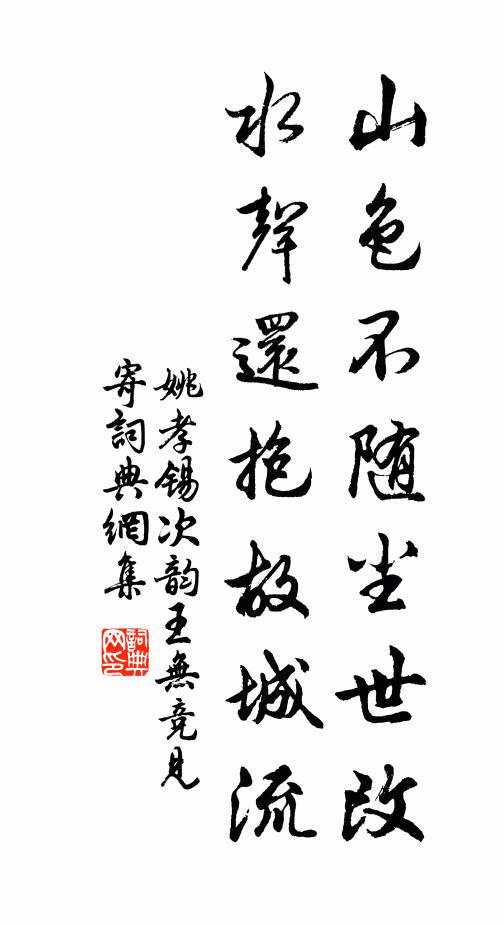 山色不随尘世改
水聲還抱故城流
姚孝錫次韵王無竞見
寄詞典網集
詞典网印